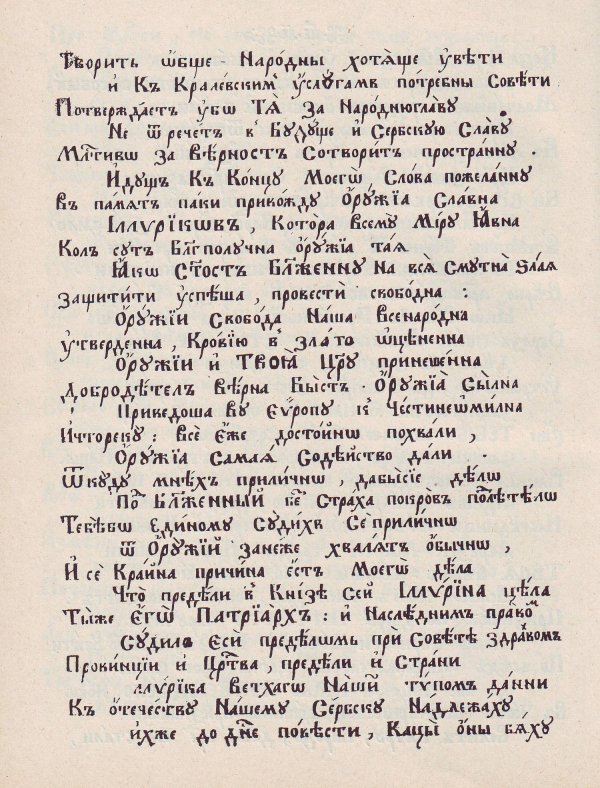 Творить ѡбще Наро́дны хотѧще ᲂувѣти
и҆ Къ Крале́вским ᲂу҆слꙋгамъ потре́бны Совѣ́ти
Потвержда́етъ ᲂу҆бѡ Тѧ̀ за Народнюглавꙋ
Не ѿ рече́тъ в̾ Бꙋдꙋще и҆ Сербскꙋю Сла́вꙋ
Млⷭ҇тивѡ за Вѣ́рность Сотвори́тъ простра́ннꙋ .
И҆дꙋщъ Къ Ко́нцꙋ Моегѡ̀, Сло́ва пожела́ннꙋ
Въ па́мѧтъ паки прихожⷣꙋ Ѻ҆рꙋ́жїа Сла́вна
І҆ллѵ́рїкѡвъ , Кото́ра Всемꙋ̀ Ми́рꙋ Ꙗ҆́вна
Колъ сꙋть Блг҃ополꙋчна ѻ҆рꙋ́жїа таѧ
Ꙗ҆́кѡ Ст҃остъ Бл҃же́ннꙋ На всѧ̀ Смꙋтна̀ ѕлаѧ
защити́ти ᲂу҆спѣ́ша , провестѝ свобо́дна :
Ѻ҆рꙋ́жїи Свобо́да На́ша Всенаро́дна
ᲂу҆твержденна , Кро́вїю в̾ зла́то ѡ҆цѣ́ненна
Ѻ҆рꙋ́жїи и҆ Твоѧ̀ Цр҃ꙋ принеше́нна
Добродѣ́тел Вѣ́рна Бы́стъ Ѻ҆рꙋ́жїа Сы́лна
Приведоша Вꙋ Еѵ҆ро́пꙋ к̾ Че́стинеѡми́лна
И҆чторекꙋ : всѐ є҆́же досто́йнѡ похва́ли ,
Ѻ҆рꙋ́жїа Самаѧ Содѣ́йство да́ли
Ѿкꙋдꙋ мнѣ́хъ прили́чнѡ , дабысїѐ дѣ́лѡ
По Бл҃же́нный без̾ Стра́ха покро́въ полетѣ́лѡ
Тебѣ́бѡ є҆ди́номꙋ Сꙋди́хъ Се прили́чнѡ
ѿ Ѻ҆рꙋ́жїй зане́же хвалѧ́тъ ѻ҆бы́чнѡ ,
И҆ сѐ Кра́йна причи́на є҆́стъ Моегѡ̀ дѣ́ла
Что̀ предѣ́ли в̾ Кни́зѣ Сей І҆ллѵ́рїна цѣ́ла
Ты́же Е҆гѡ̀ Патрїа́рхъ : и҆ Наслѣ́дним пра́вом
Сꙋди́лъ Еси̂ предѣ́лѡмъ при Совѣ́тѣ здра́вомъ
Прови́нцїи и҆ Црⷭ҇тва , предѣ́ли и҆ Страни
ллѵ́рїка Ветхагѡ На́шим ти́пом да́нни
Къ ѻ҆те́чествꙋ На́шемꙋ Се́рбскꙋ Надлежа́хꙋ
и҆́хже до днѐ по́вѣсти , Кацы̀ ѻ҆́ны бѧ́хꙋ